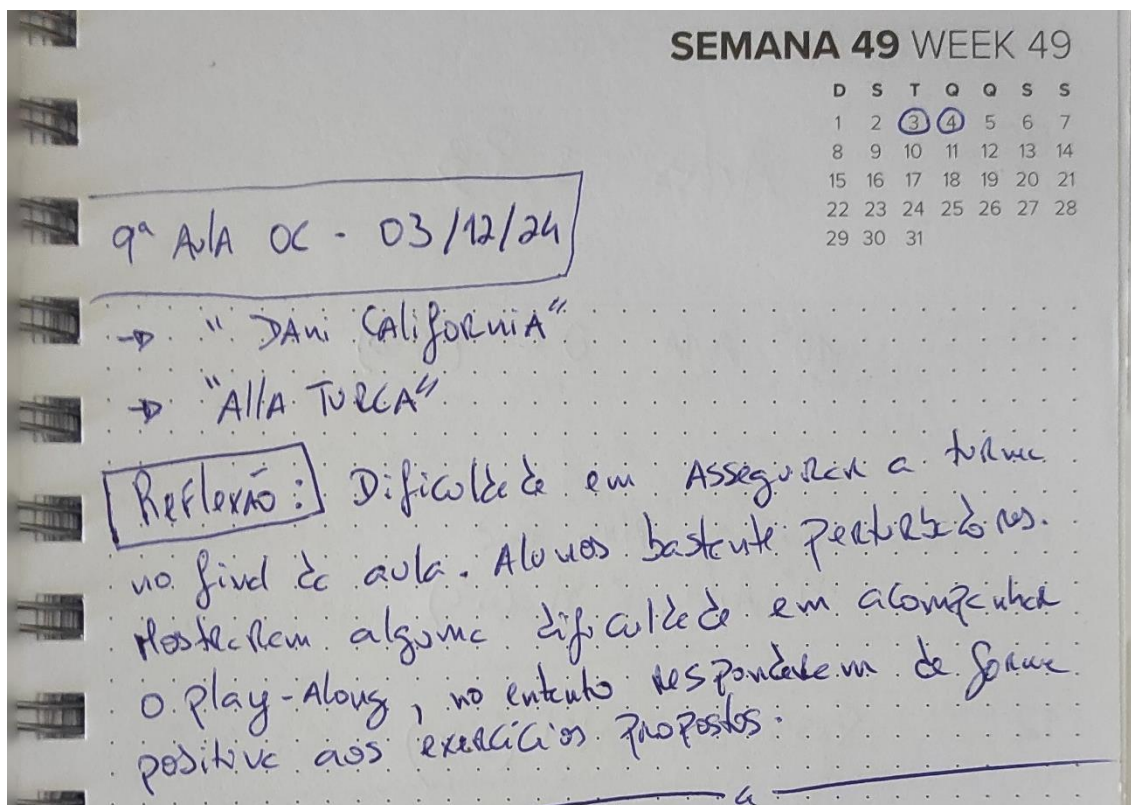 SEMANA 49 WEEK 49
D S T Q Q S S
1 2 3 4 5 6 7
8 9 10 11 12 13 14
15 16 17 18 19 20 21
22 23 24 25 26 27 28
29 30 31
9ª AulA OC - 03/12/24
→ "DAni CAliforniA"
→ "AllA TURCA"
Reflexão: Dificuldade em Assegurar a turma
no final da aula. Alunos bastante perturbadores.
Mostraram alguma dificuldade em acompanhar
o play-Along, no entanto responderam de forma
positiva aos exercícios propostos.